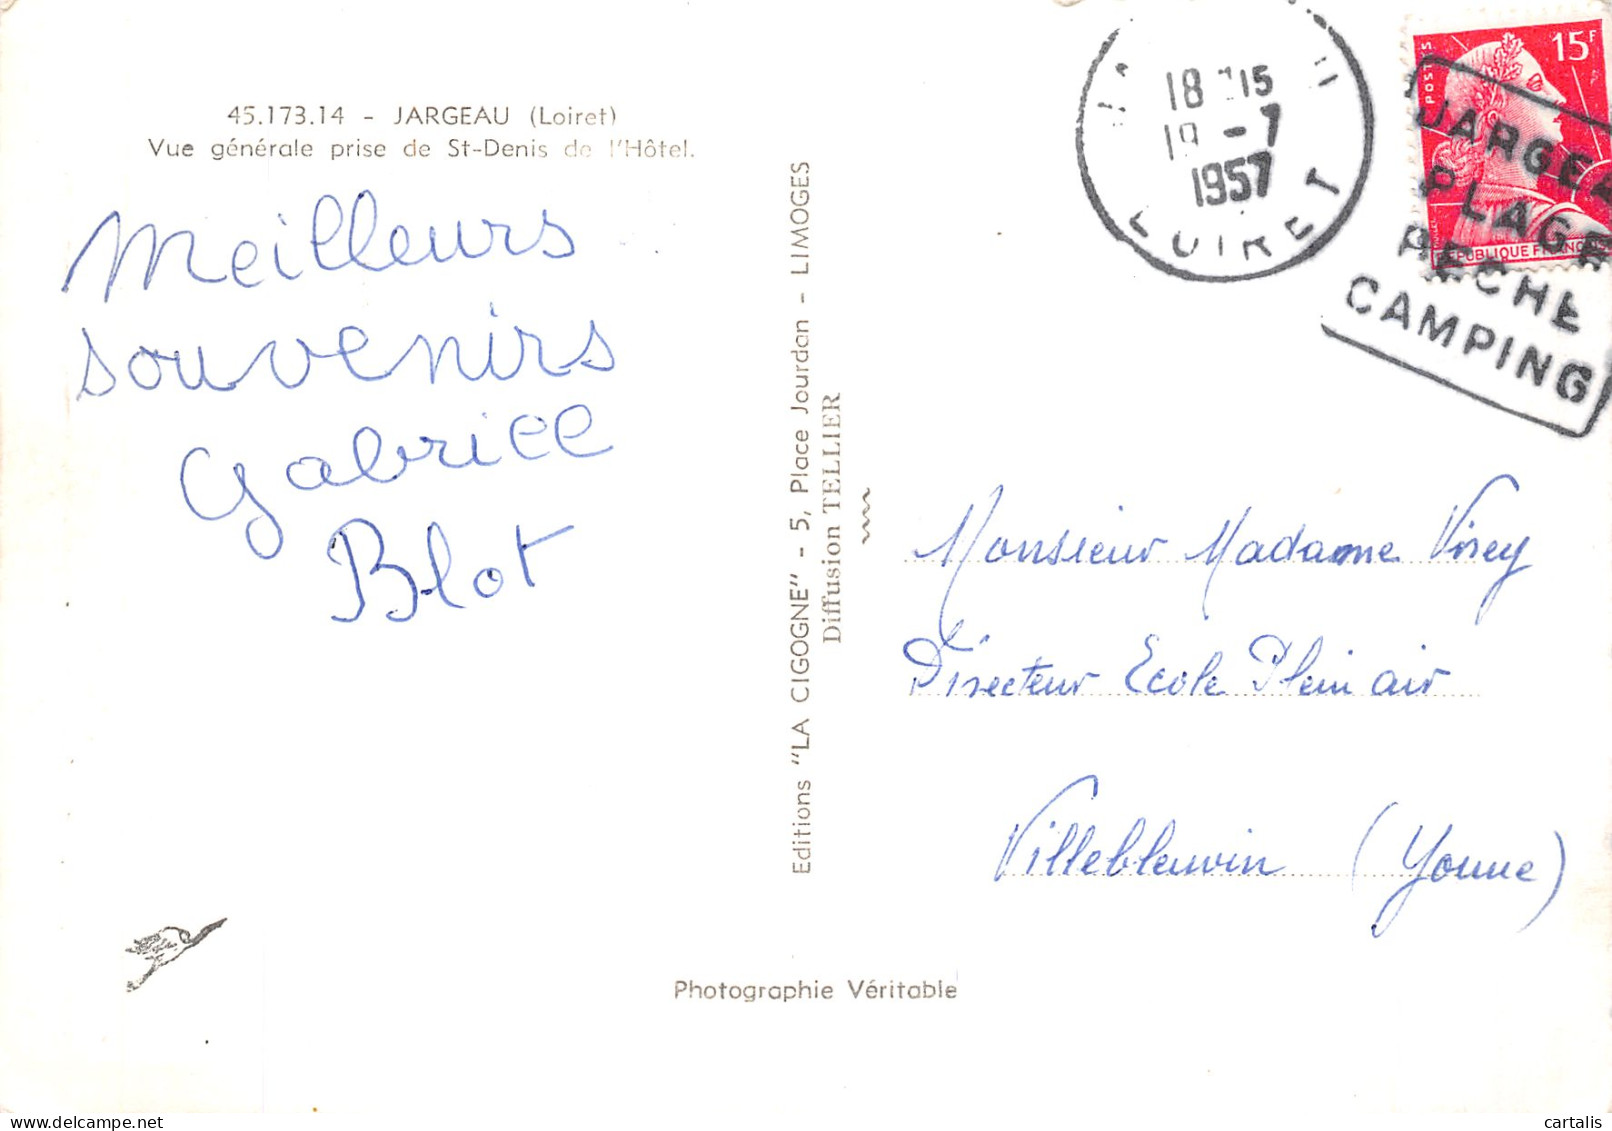 45.173.14 - JARGEAU (Loiret)
Vue générale prise de St-Denis de l'Hôtel.
Meilleurs
souvenirs
Gabriell
Blot
Editions "LA CIGOGNE" - 5, Place Jourdan - LIMOGES
Diffusion TELLIER
18 15
19 -7
1957
LOIRET
15F
POSTES
REPUBLIQUE FRANC
JARGEA
PLAGE
PECHE
CAMPING
Monsieur Madame Virey
Directeur Ecole Plein air
Villeblevin (Yonne)
Photographie Véritable
cartalis